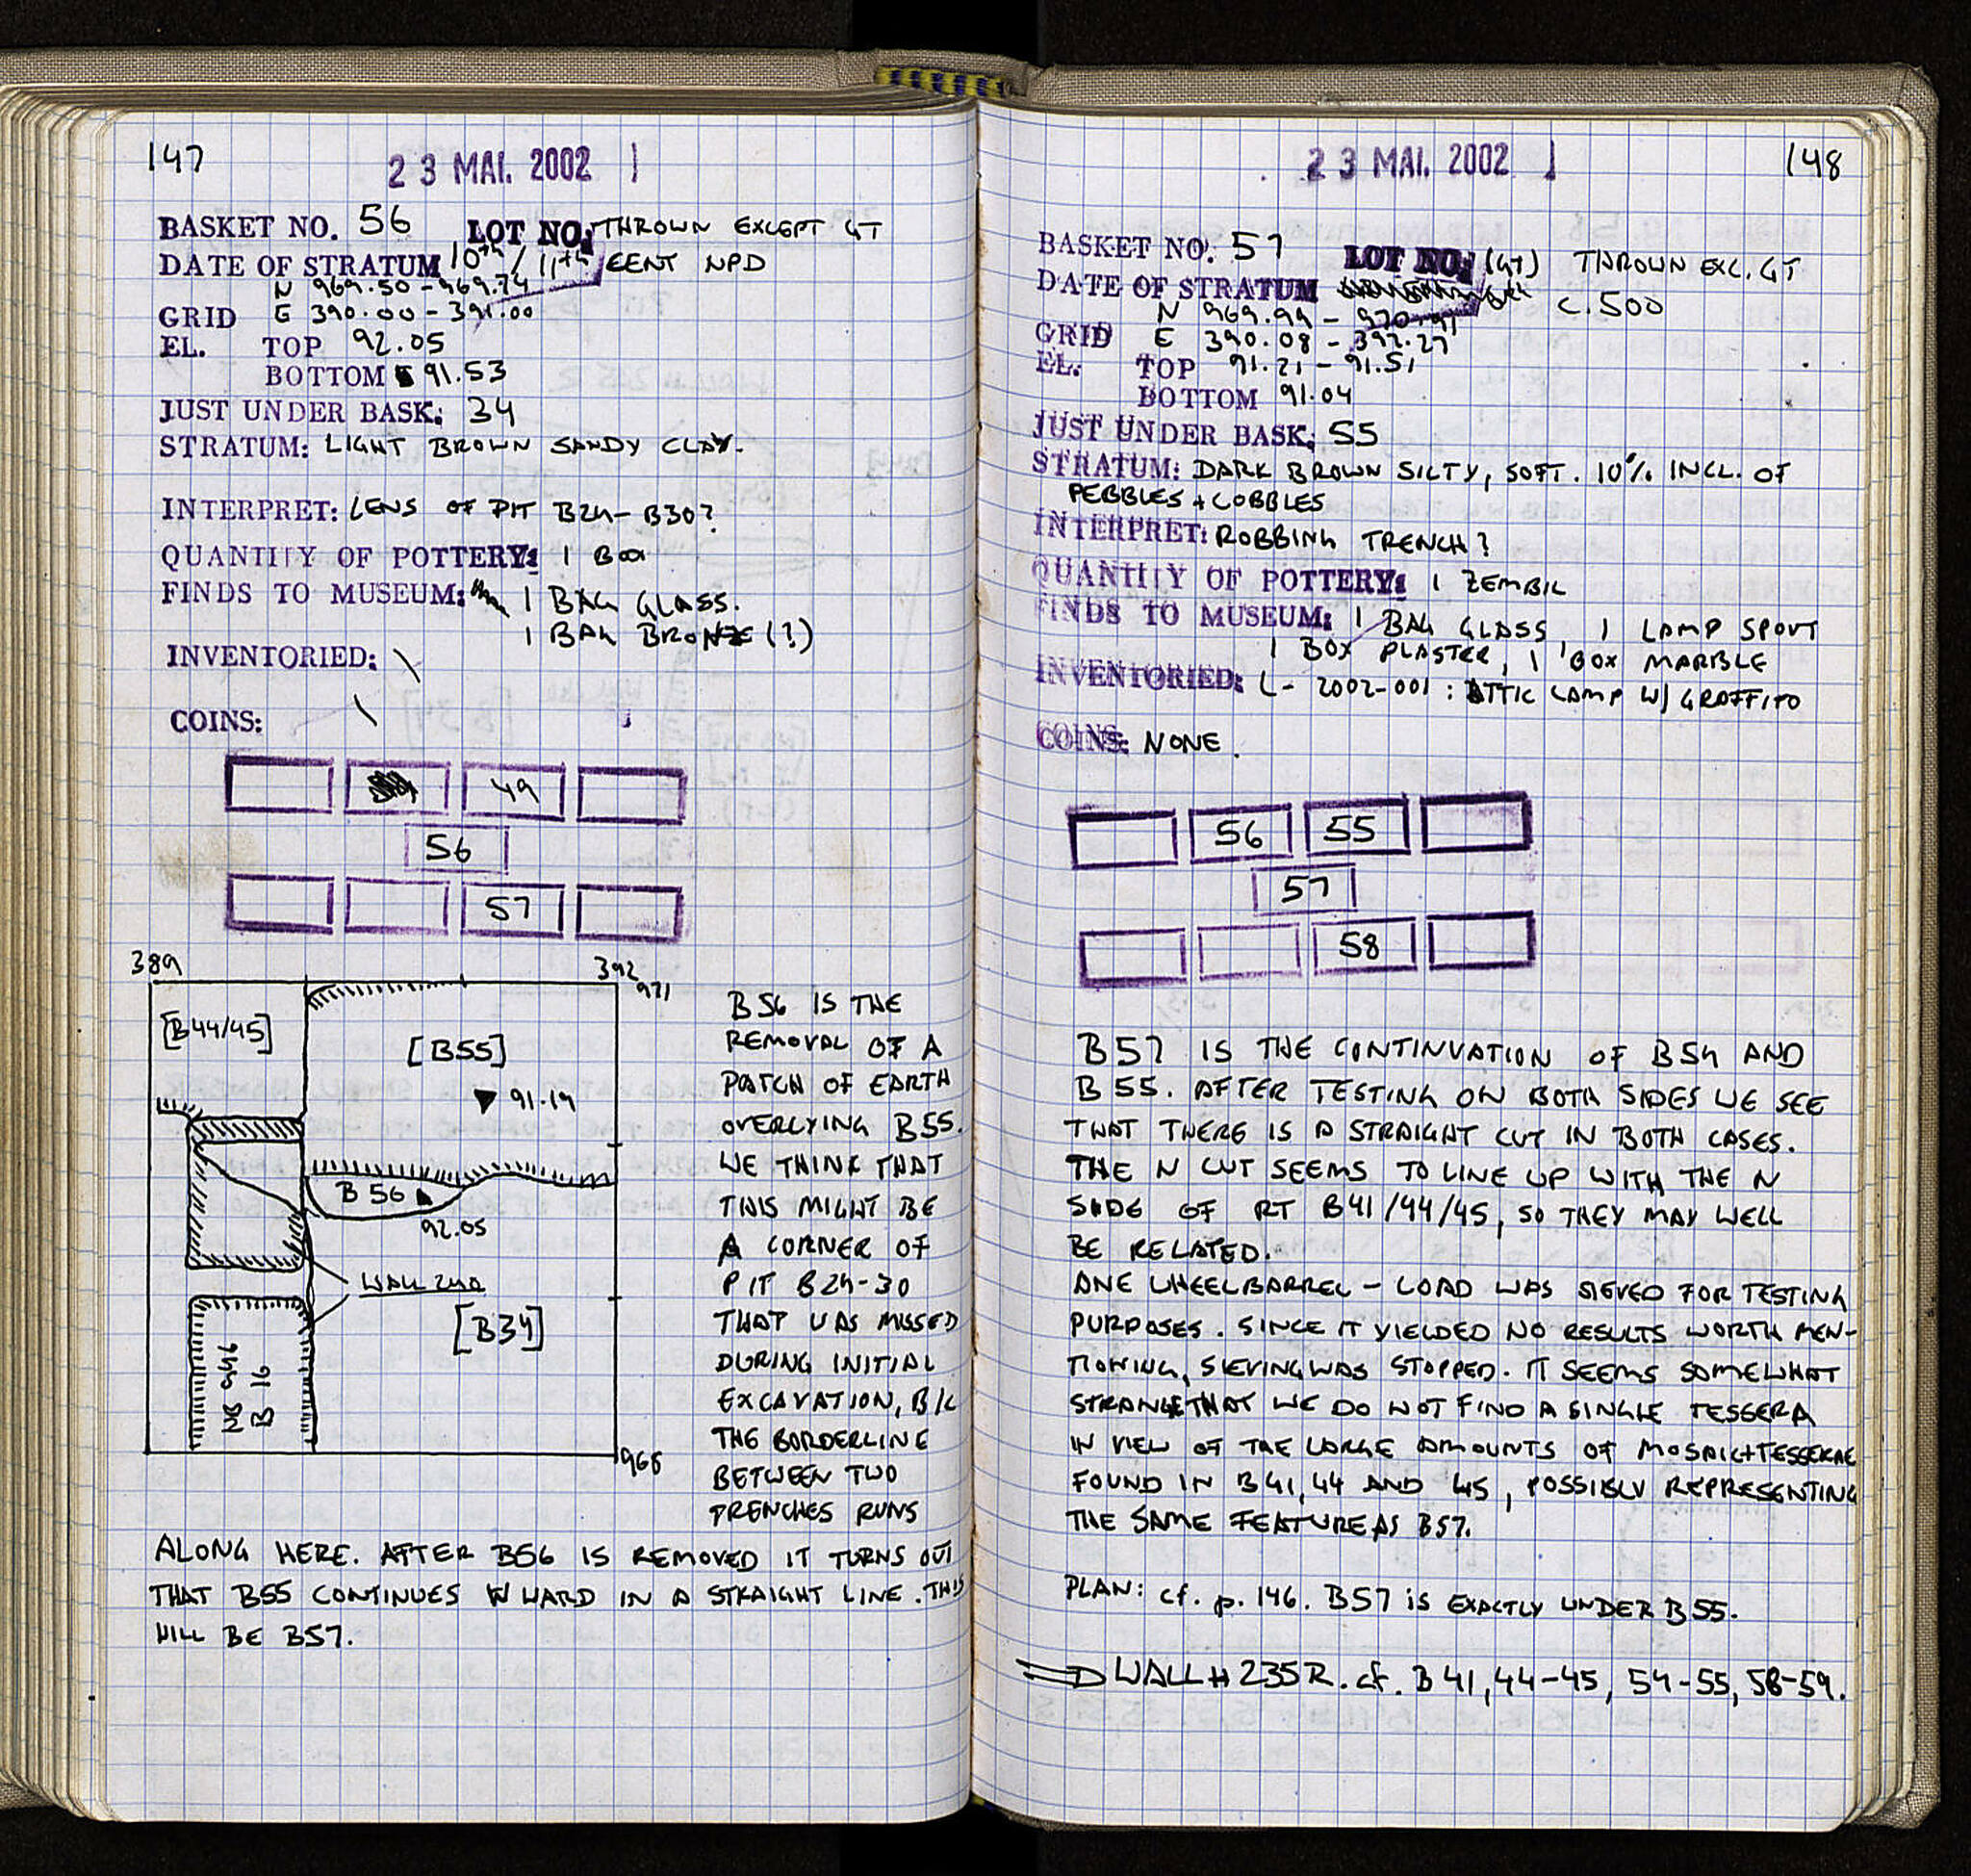 147
23 MAI. 2002
BASKET NO. 56 LOT NO: THROWN EXCEPT GT
DATE OF STRATUM 10th / 11th CENT NPD
N 969.50 - 969.74
GRID E 390.00 - 391.00
EL. TOP 92.05
BOTTOM 91.53
JUST UNDER BASK: 34
STRATUM: LIGHT BROWN SANDY CLAY.
INTERPRET: LENS OF PIT B29-B30?
QUANTITY OF POTTERY: 1 BOX
FINDS TO MUSEUM: 1 BAG GLASS.
1 BAG BRONZE (?)
INVENTORIED: \
COINS: \
49
56
57
389 392
971
[B44/45]
[B55]
91.19
B 56
92.05
WALL 240
[B34]
NB 946
B 16
966
B56 IS THE
REMOVAL OF A
PATCH OF EARTH
OVERLYING B55.
WE THINK THAT
THIS MIGHT BE
A CORNER OF
PIT B29-30
THAT WAS MISSED
DURING INITIAL
EXCAVATION, B/C
THE BORDERLINE
BETWEEN TWO
TRENCHES RUNS
ALONG HERE. AFTER B56 IS REMOVED IT TURNS OUT
THAT B55 CONTINUES WWARD IN A STRAIGHT LINE. THIS
WILL BE B57.
23 MAI. 2002
148
BASKET NO. 57 LOT NO: (GT) THROWN EXC. GT
DATE OF STRATUM c.500
N 969.99 - 970.91
GRID E 390.08 - 392.27
EL. TOP 91.21 - 91.51
BOTTOM 91.04
JUST UNDER BASK: 55
STRATUM: DARK BROWN SILTY, SOFT. 10% INCL. OF
PEBBLES + COBBLES
INTERPRET: ROBBING TRENCH?
QUANTITY OF POTTERY: 1 ZEMBIL
FINDS TO MUSEUM: 1 BAG GLASS, 1 LAMP SPOUT
1 BOX PLASTER, 1 BOX MARBLE
INVENTORIED: L - 2002-001 : ATTIC LAMP W/ GRAFFITO
COINS: NONE.
56 55
57
58
B57 IS THE CONTINUATION OF B54 AND
B 55. AFTER TESTING ON BOTH SIDES WE SEE
THAT THERE IS A STRAIGHT CUT IN BOTH CASES.
THE N CUT SEEMS TO LINE UP WITH THE N
SIDE OF RT B41/44/45, SO THEY MAY WELL
BE RELATED.
ONE WHEELBARREL-LOAD WAS SIEVED FOR TESTING
PURPOSES. SINCE IT YIELDED NO RESULTS WORTH MEN-
TIONING, SIEVING WAS STOPPED. IT SEEMS SOMEWHAT
STRANGE THAT WE DO NOT FIND A SINGLE TESSERA
IN VIEW OF THE LARGE AMOUNTS OF MOSAIC+TESSERAE
FOUND IN B41, 44 AND 45, POSSIBLY REPRESENTING
THE SAME FEATURE AS B57.
PLAN: cf. p. 146. B57 IS EXACTLY UNDER B55.
⇒ WALL # 235 R. cf. B 41, 44-45, 54-55, 58-59.